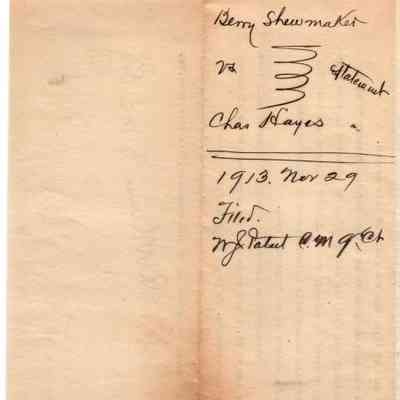 Berry Shewmaker
vs Statement
Chas Hayes
1913. Nov 29
Filed.
W J